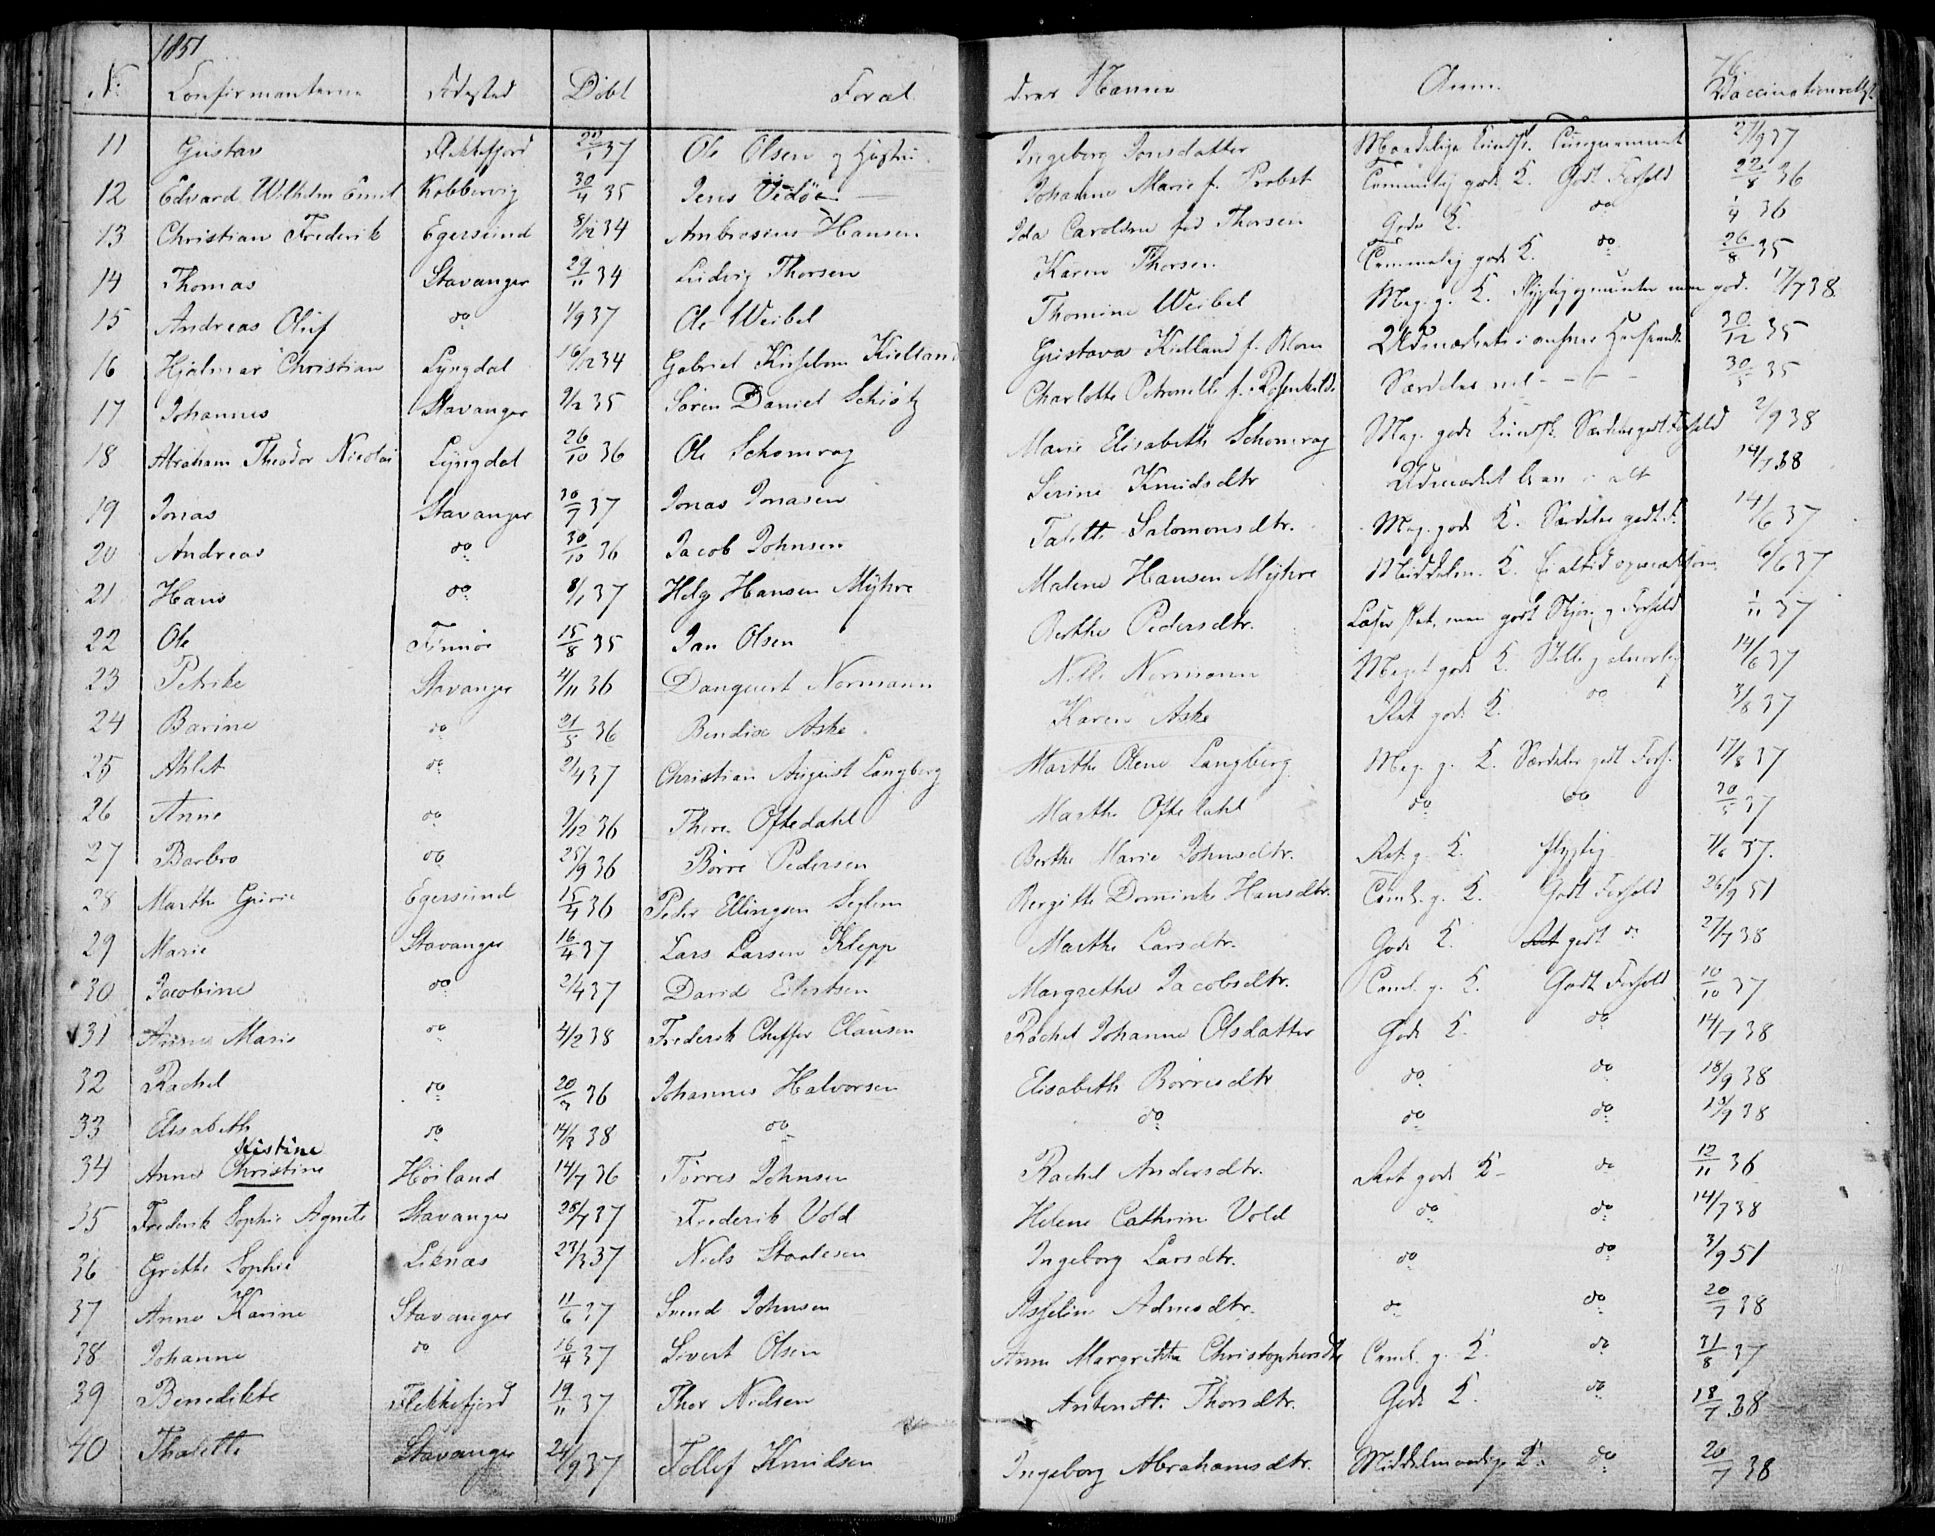 1851
No Confirmanterne Fødested Døbt Foræl drenes Navne Anm. Vaccinationsatt.
11 Gustav Flekkefjord 22/1 37 Ole Olsen og Hustru Ingeborg Jonsdatter Maadelige Kundsk. 27/9 37
12 Edvard Wilhelm Emil Kobbervig 30/4 35 Jens Vidøe Johanne Marie f. Probst Temmelig gode K. Godt Forhold 22/8 36
13 Christian Frederik Egersund 8/12 34 Ambrosius Hansen Ida Caroline fød Thorsen Gode K. do 1/9 36
14 Thomas Stavanger 29/11 34 Ludvig Thorsen Karen Thorsen Temmelig gode K. do 26/8 35
15 Andreas Oluf do 1/9 37 Ole Weibel Thomine Weibel Meg. g. K. 17/7 38
16 Hjalmar Christian Lyngdal 16/12 34 Gabriel Kirsebom Kielland Gustava Kielland f. Blom 30/12 35
17 Johannes Stavanger 9/2 35 Søren Daniel Schiøtz Charlotte Petronelle f. Rosenkilde Særdeles vel - - - 30/5 35
18 Abraham Theodor Nicolai Lyngdal 26/10 36 Ole Schomrag Marie Elisabeth Schomrag Meg. gode Kundsk. Særdeles godt Forhold 2/9 38
19 Jonas Stavanger 30/7 37 Jonas Jonasen Serine Knudsdtr. Udmærket bra i alt 14/7 38
20 Andreas do 30/10 36 Jacob Johnsen Talette Salomonsdtr. Meg. gode K. Særdeles godt F. 14/6 37
21 Hans do 8/1 37 Helge Hansen Myhre Malene Hansen Myhre Middelm. K. Ei altid opmærksom 6/6 37
22 Ole Finnøe 15/8 35 Jan Olsen Berthe Pedersdtr. Læser slet, men godt Skjøn og Forhold 1/11 37
23 Petrike Stavanger 4/11 36 Danquert Normann Nille Normann Meget gode K. Stille og alvorlig 14/6 37
24 Barine do 21/5 36 Bendix Aske Karen Aske Ret gode K. do 3/8 37
25 Ahlet do 2/4 37 Christian August Langberg Marthe Olene Langberg Meg. g. K. Særdeles godt Forh. 17/8 37
26 Anne do 9/12 36 Thore Oftedahl Marthe Oftedahl do do 30/5 37
27 Barbro do 25/9 36 Børre Pedersen Berthe Marie Johnsdtr. Ret g. K. flygtig 7/6 37.
28 Marthe Gurine Egersund 15/4 36 Peder Ellingsen Seglem Bergitte Dominke Hansdtr. Teml. g. K. Godt Forhold 26/9 51
29 Marie Stavanger 16/4 37 Lars Larsen Klepp Marthe Larsdtr. Gode K. Ret godt do 27/7 38
30 Jacobine do 2/4 37 David Eilertsen Margrethe Jacobsdtr. Teml. g. K. Godt Forhold 10/10 37
31 Anne Marie do 4/2 38 Frederik Cheffer Clausen Rachel Johanne Olsdatter Gode K. do 14/7 38
32 Rachel do 20/7 36 Johannes Halvorsen Elisabeth Børresdtr. do do 18/9 38
33 Elisabeth do 14/3 38 do do do do 18/9 38
Kistine
34 Anne Christine Høiland 14/7 36 Tørres Johnsen Rachel Andersdtr. Ret gode K. do 12/11 36
35 Frederik Sophie Agnete Stavanger 28/7 37 Frederik Vold Helene Cathrin Vold do do 14/7 38
36 Grethe Sophie Lienæs 23/3 37 Niels Staalesen Ingeborg Larsdtr. do do 3/9 51
37 Anne Karine Stavanger 11/6 37 Svend Johnsen Asseline Admsdtr. do do 20/7 38
38 Johanne do 16/4 37 Sivert Olsen Anne Margrethe Christophersdtr Teml. g. K. do 31/8 37
39 Benedikte Flekkefjord 19/11 37 Thor Nielsen Antonette Thorsdtr. Gode K. do 18/7 38
40 Thalette Stavanger 24/9 37 Tollef Knudsen Ingeborg Abrahamsdtr. Middelmaadige K. do 20/7 38